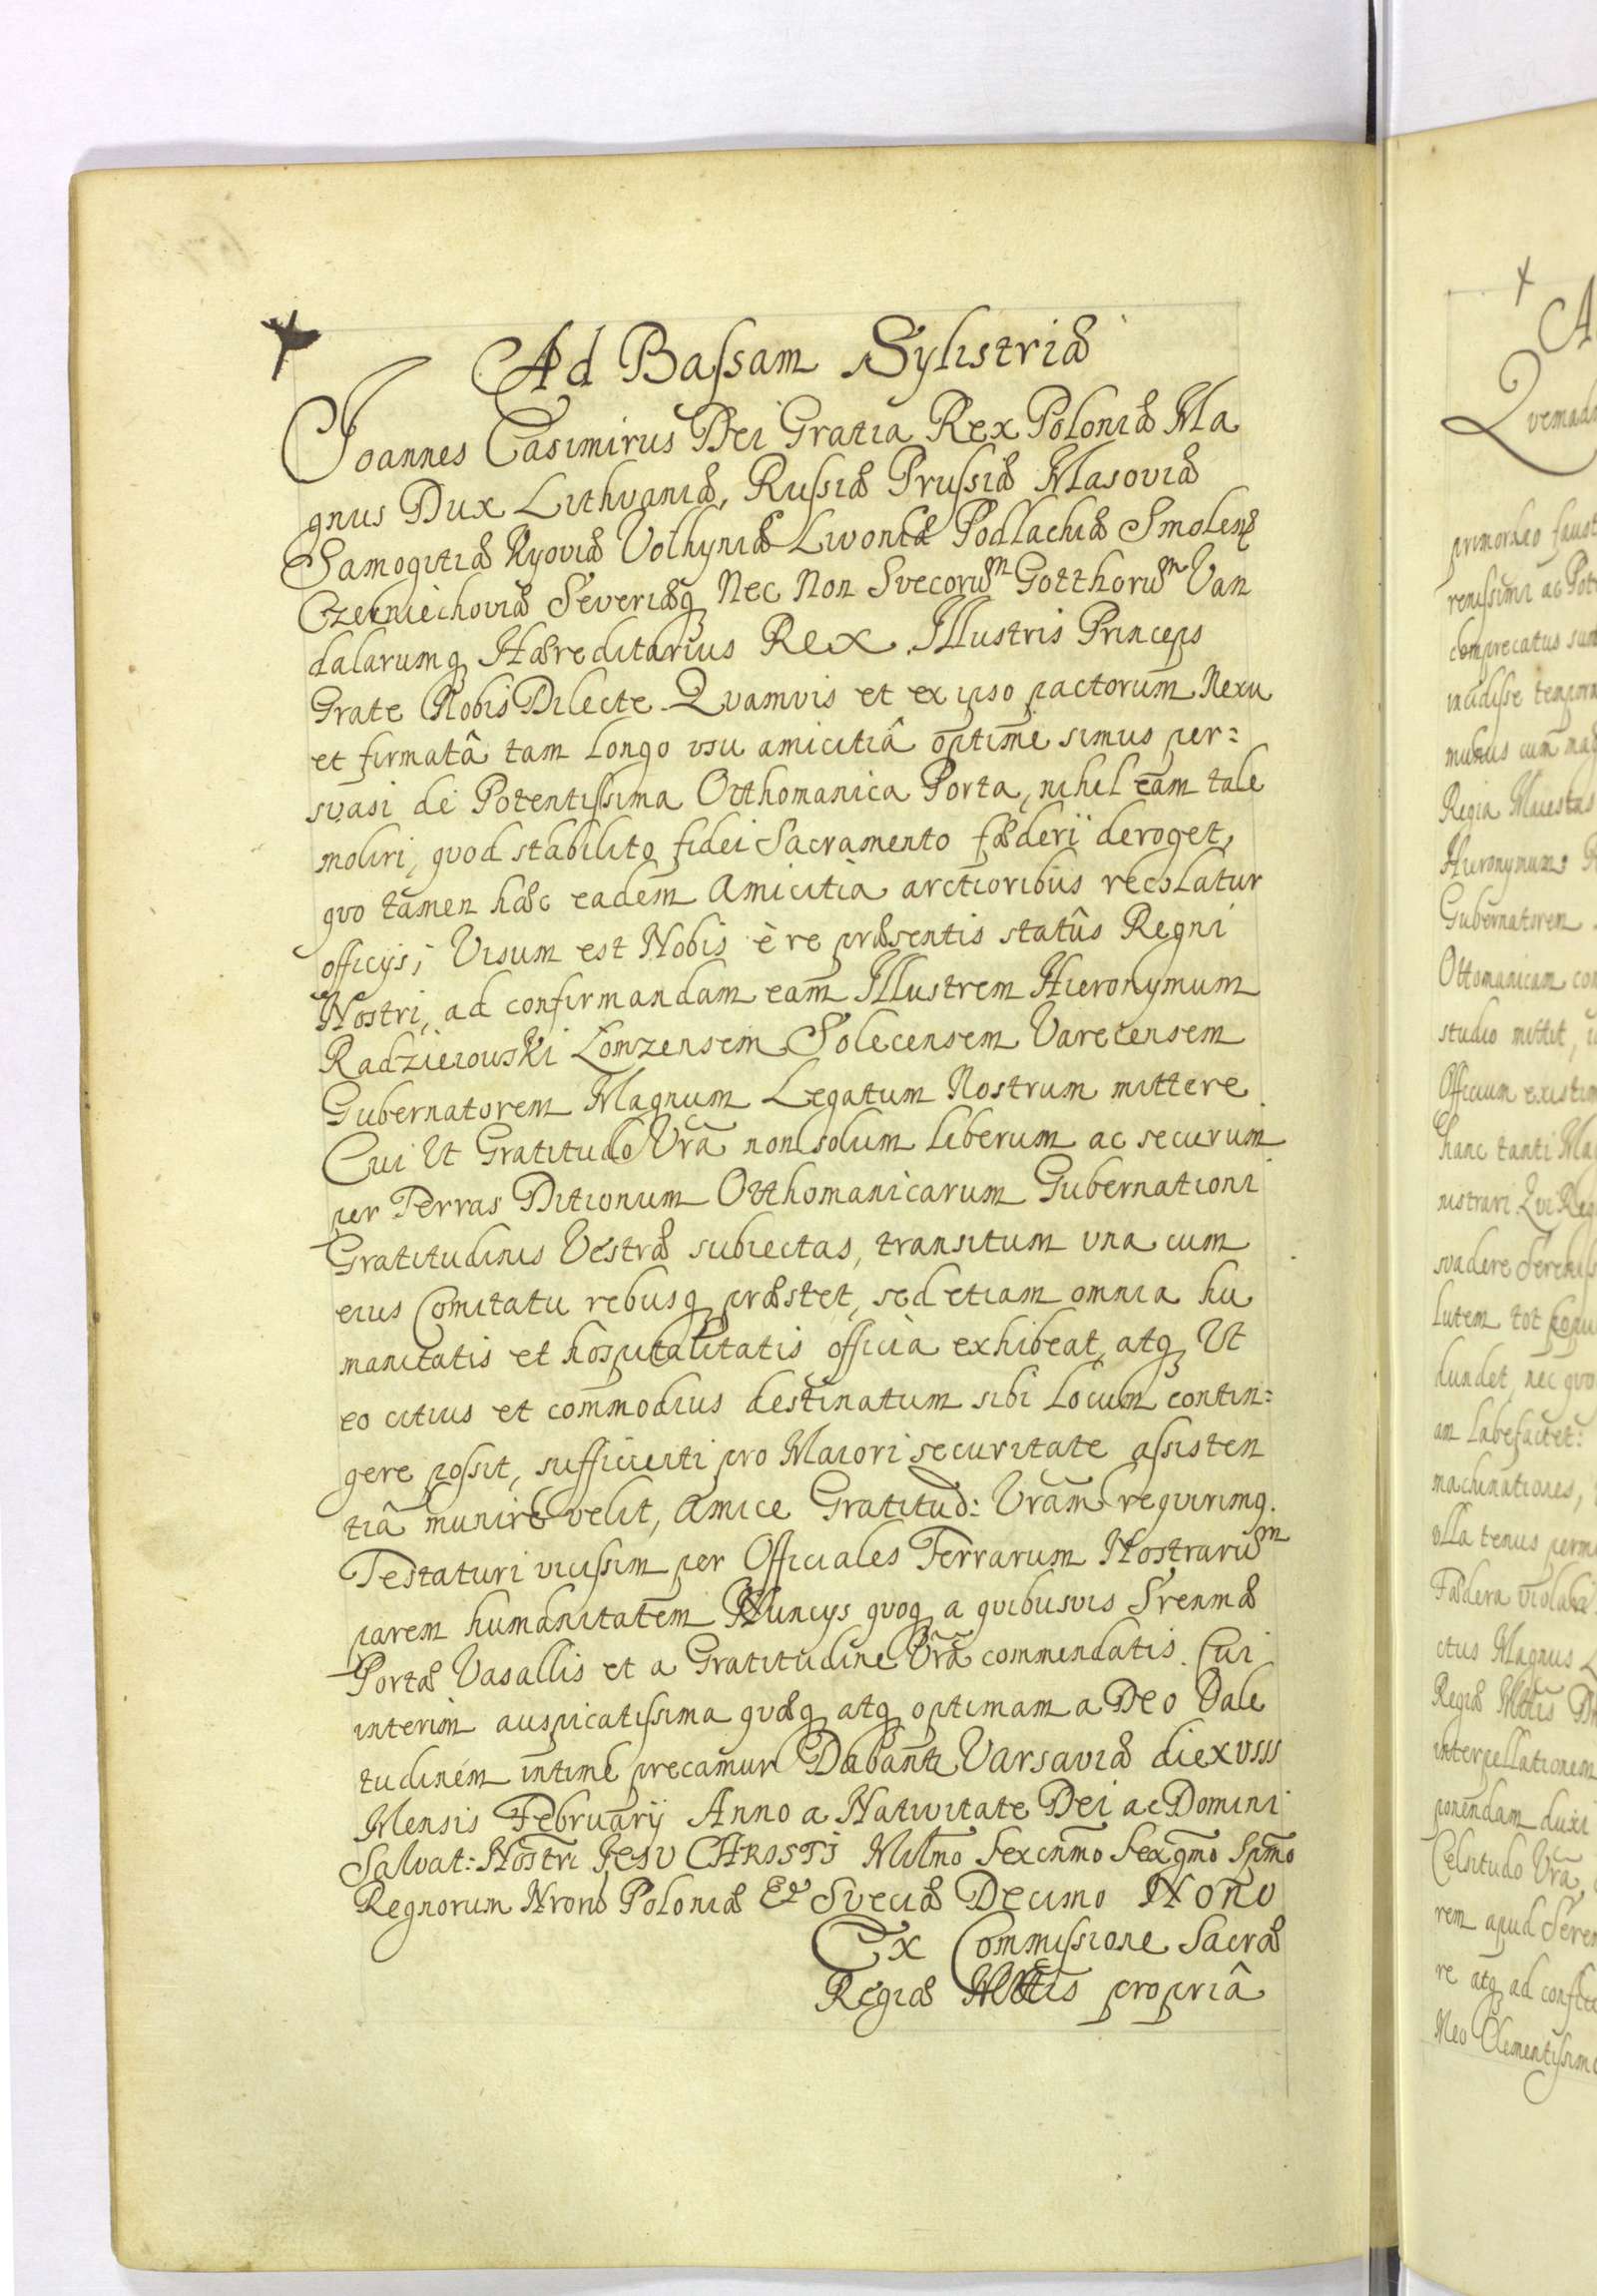 Ad Bassam Sylistriæ
Joannes Casimirus Dei Gratia Rex Poloniæ Ma
gnus Dux Lithvaniæ, Russiæ Prussiæ Masoviæ
Samogitiæ Kyoviæ Volhyniæ Livoniæ Podlachiæ Smolenę
Czerniechoviæ Severiæq Nec Non Svecorūm Gotthorūm Van
dalarumq Hæreditarius Rex Illustris Princeps
Grate Nobis Dilecte Qvamvis et ex ipso pactorum Nexu
et firmatâ tam longo vsu amicitiâ optime simus per=
svasi de Potentissima Otthomanica Porta, nihil eam tale
moliri, qvod stabilito fidei Sacramento fæderi deroget,
qvo tamen hæc eadem Amicitia arctioribus recolatur
officijs; Visum est Nobis è re præsentis statûs Regni
Nostri, ad confirmandam eam Illustrem Hieronymum
Radzieiowski Łomzensem Solecensem Varecensem
Gubernatorem Magnum Legatum Nostrum mittere
Cui Ut Gratitudo Vrã non solum liberum ac securum
per Terras Ditionum Otthomanicarum Gubernationi
Gratitudinis Vestræ subiectas, transitum vna cum
eius Comitatu rebusq præstet, sed etiam omnia hu
manitatis et hospitalitatis officia exhibeat, atq Ut
eo citius et commodius destinatum sibi locum contin=
gere possit, sufficienti pro Maiori securitate assisten
tiâ munire velit, Amice Gratitud: Vrãm reqvirimq.
Testaturi vicissim per Officiales Terrarum Nostrarūm
parem humanitatem Nuncijs qvoq a qvibusvis Srenmæ
Portæ Vasallis et a Gratitudine Vrã commendatis. Cui
interim auspicatissima qvæq atq optimam a Deo Vale
tudinem intime precamur Dabant Varsaviæ die XVIII
Mensis Februarij Anno a Nativitate Dei ac Domini
Salvat: Nostri Jesu CHRISTI Millmo Sexcnmo Sexgmo Spmo
Regnorum Nrorū Poloniæ Et Sveciæ Decimo Nono
Ex Commissione Sacræ
Regiæ Mttis propriâ